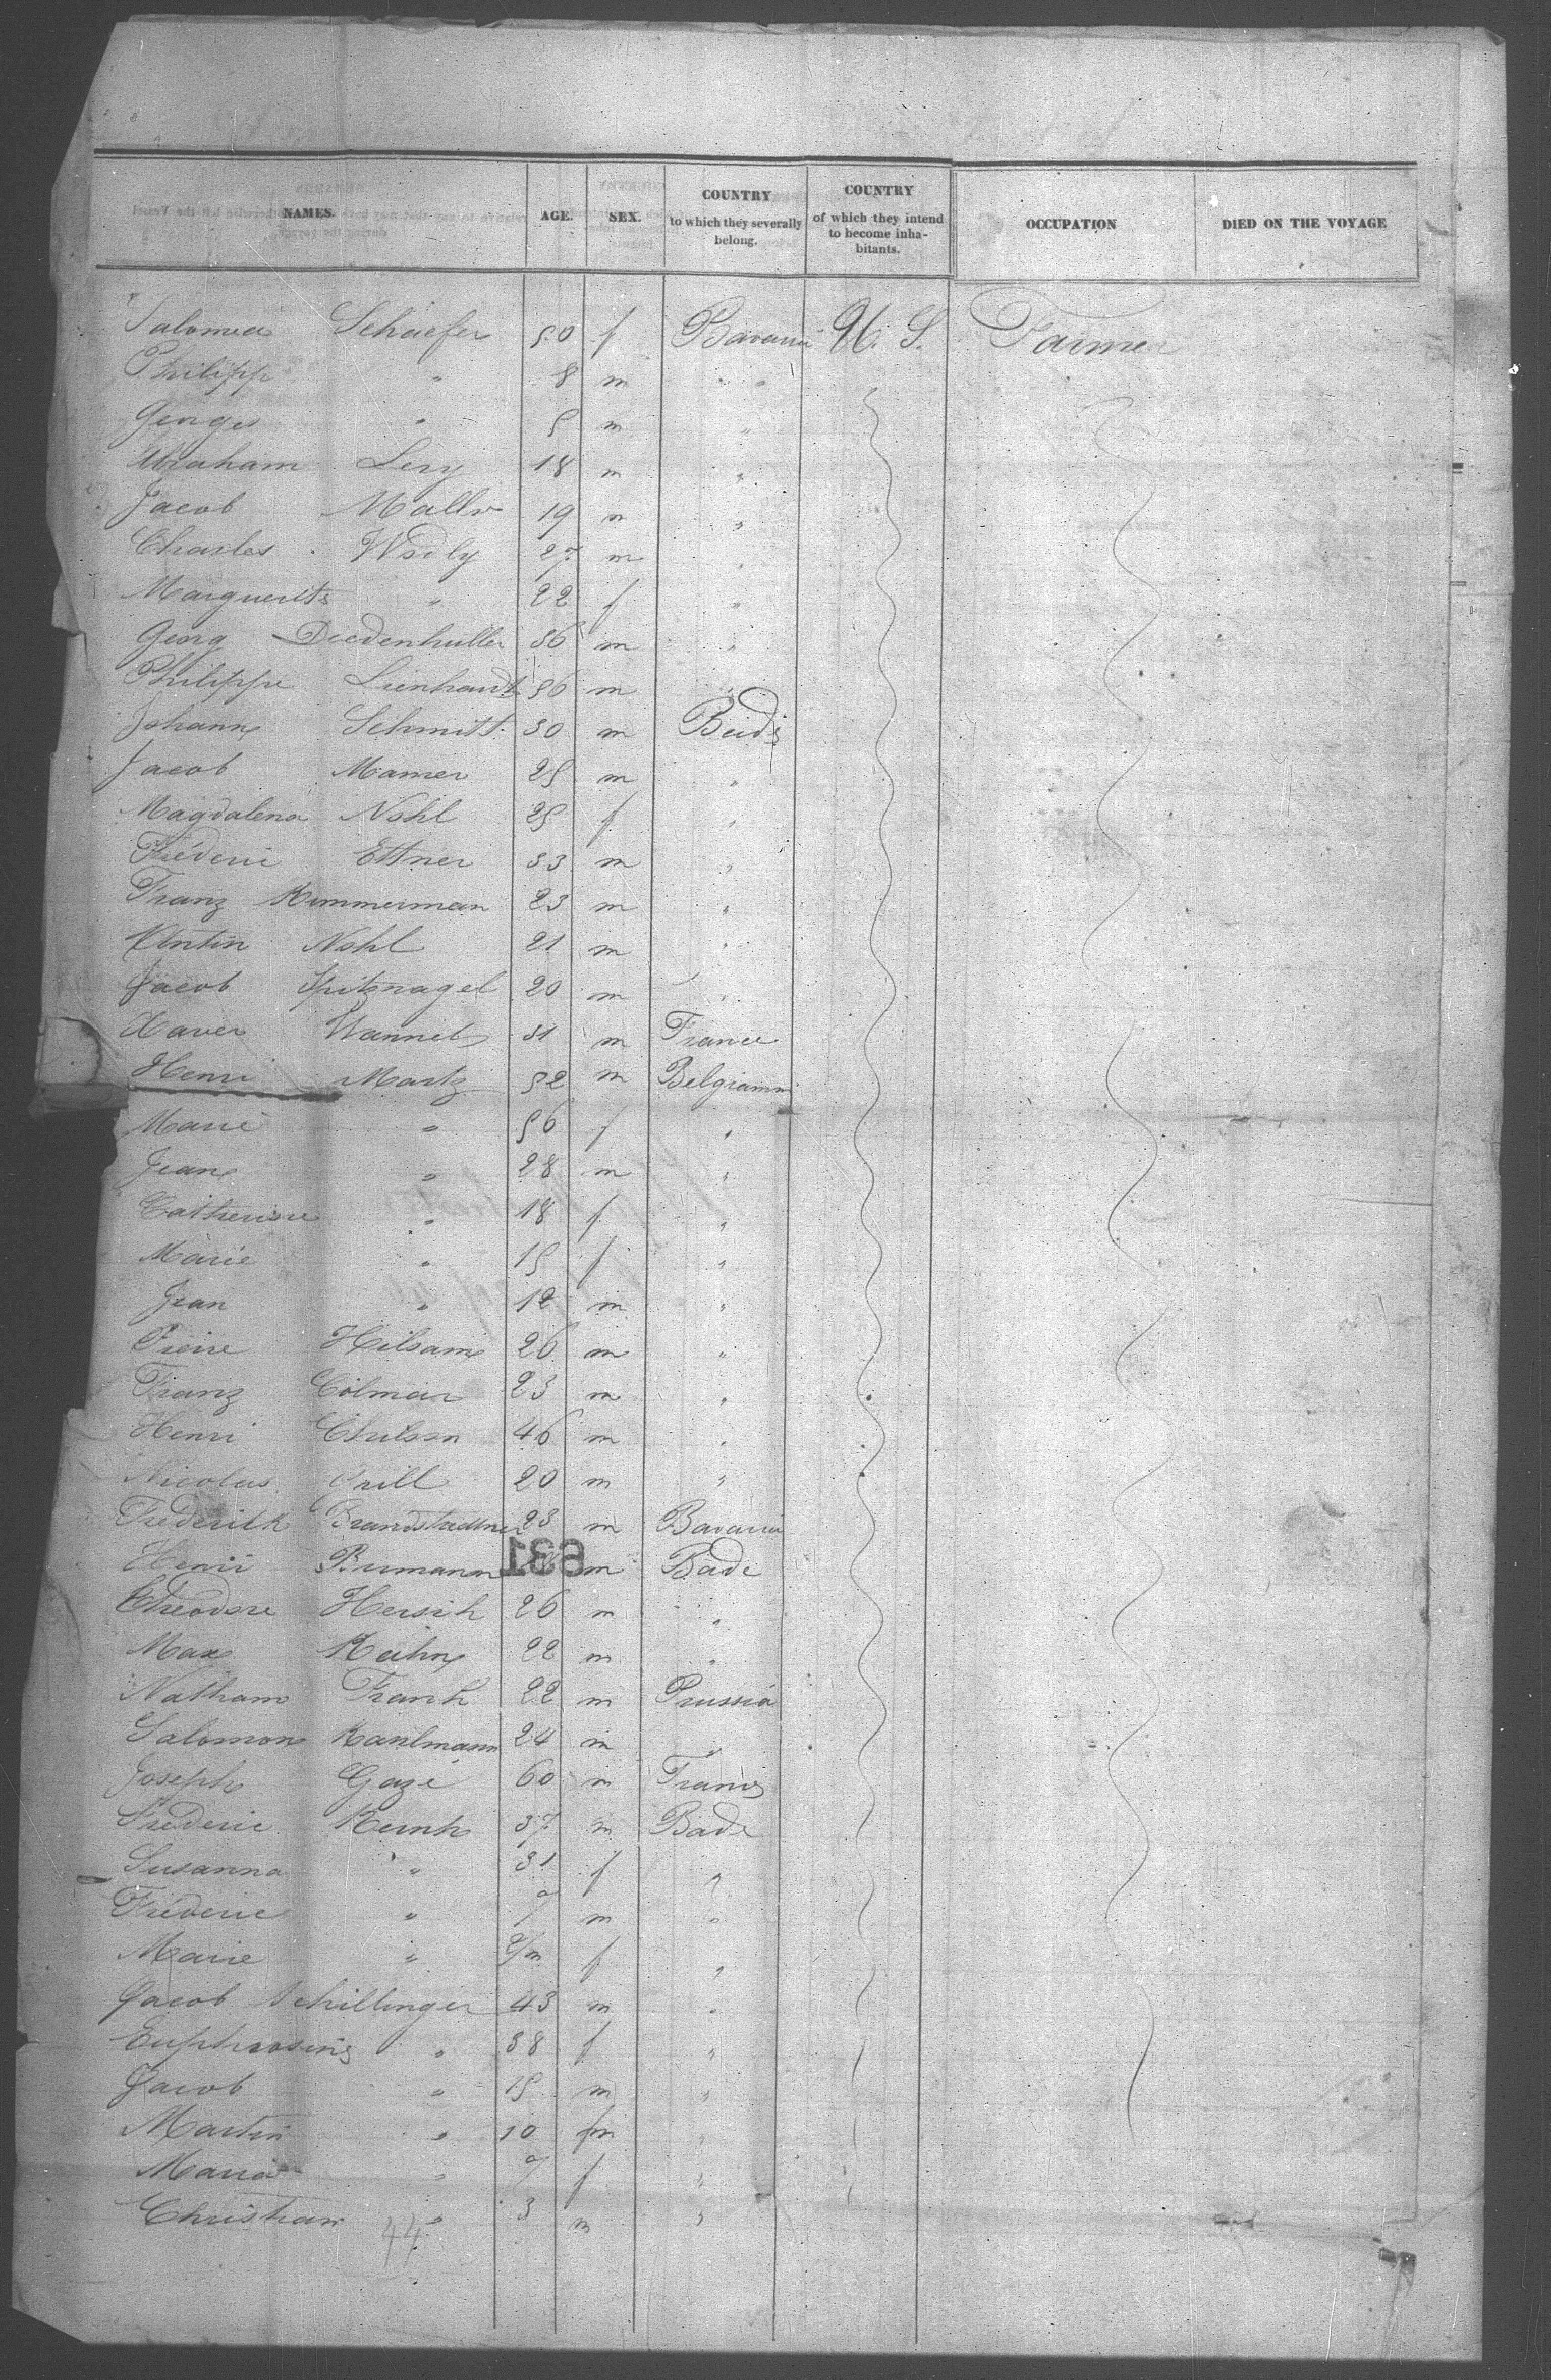 NAMES. AGE. SEX. COUNTRY to which they severally belong. COUNTRY of which they intend to become inhabitants. OCCUPATION DIED ON THE VOYAGE
Salomea Schaefer 50 f Bavaria U. S. Farmer
Philipp " 8 m "
Georges " 5 m "
Abraham Levy 18 m "
Jacob 19 m "
Charles 27 m "
Marguerite " 22 f "
Georg 36 m "
Philippe Lienhardt 56 m "
Johann Schmitt 30 m Bade
Jacob Mamer 25 m "
Magdalena Nohl 25 f "
Fréderic Ettner 33 m "
Franz Kimmerman 23 m "
Antin Nohl 21 m "
Jacob Spitznagel 20 m "
Xaver 31 m France
Henri Martz 52 m Belgiamm
Marie " 56 f "
Jean " 28 m "
Catherine " 18 f "
Marie " 15 f "
Jean " 12 m "
Pierre 26 m "
Franz Colmar 23 m "
Henri 46 m "
Nicolas 20 m "
Fréderick Brandstædtner 23 m Bavaria
Henri m Bade
631
Théodore Hersih 26 m "
Max Kuhn 22 m "
Nathan Frank 22 m Prussia
Salomon Kanlmann 24 m
Joseph Gazé 60 m France
Fréderic 37 m Bade
Susanna " 31 f "
Fréderic " 7 m "
Marie " f "
Jacob Schillinger 43 m "
Euphrosine " 38 f "
Jacob " 15 m "
Martin " 10 m "
Maria " 7 f "
Christian " 3 m "
44